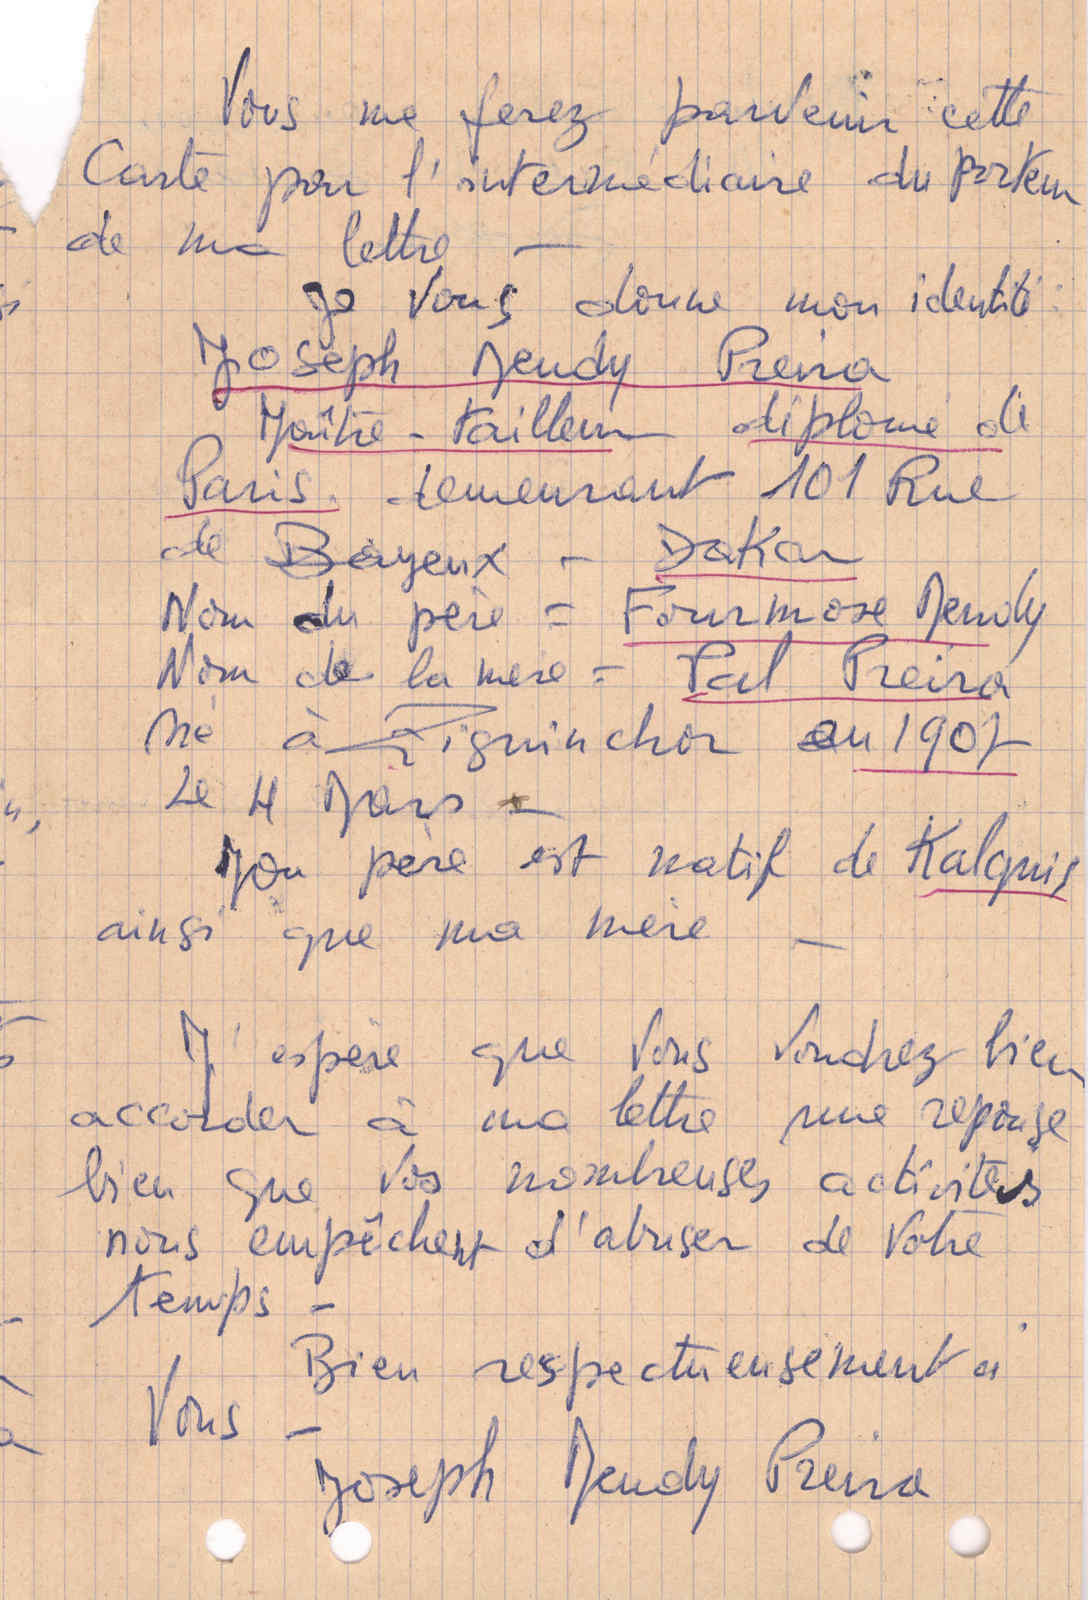 Vous me ferez parvenir cette
Carte par l'intermédiaire du porteur
de ma lettre —
Je vous donne mon identité :
Joseph Mendy Preira
Maître - tailleur diplomé de
Paris. demeurant 101 Rue
de Bayeux - Dakar
Nom du père = Fourmose Mendy
Nom de la mère = Pal Preira
Né à Ziguinchor en 1907
Le 4 Mars -
Mon père est natif de Kalquis
ainsi que ma mère —
J'espère que vous voudrez bien
accorder à ma lettre une reponse
bien que vos nombreuses activités
nous empêchent d'abuser de votre
temps -
Bien respectueusement à
Vous -
Joseph Mendy Preira